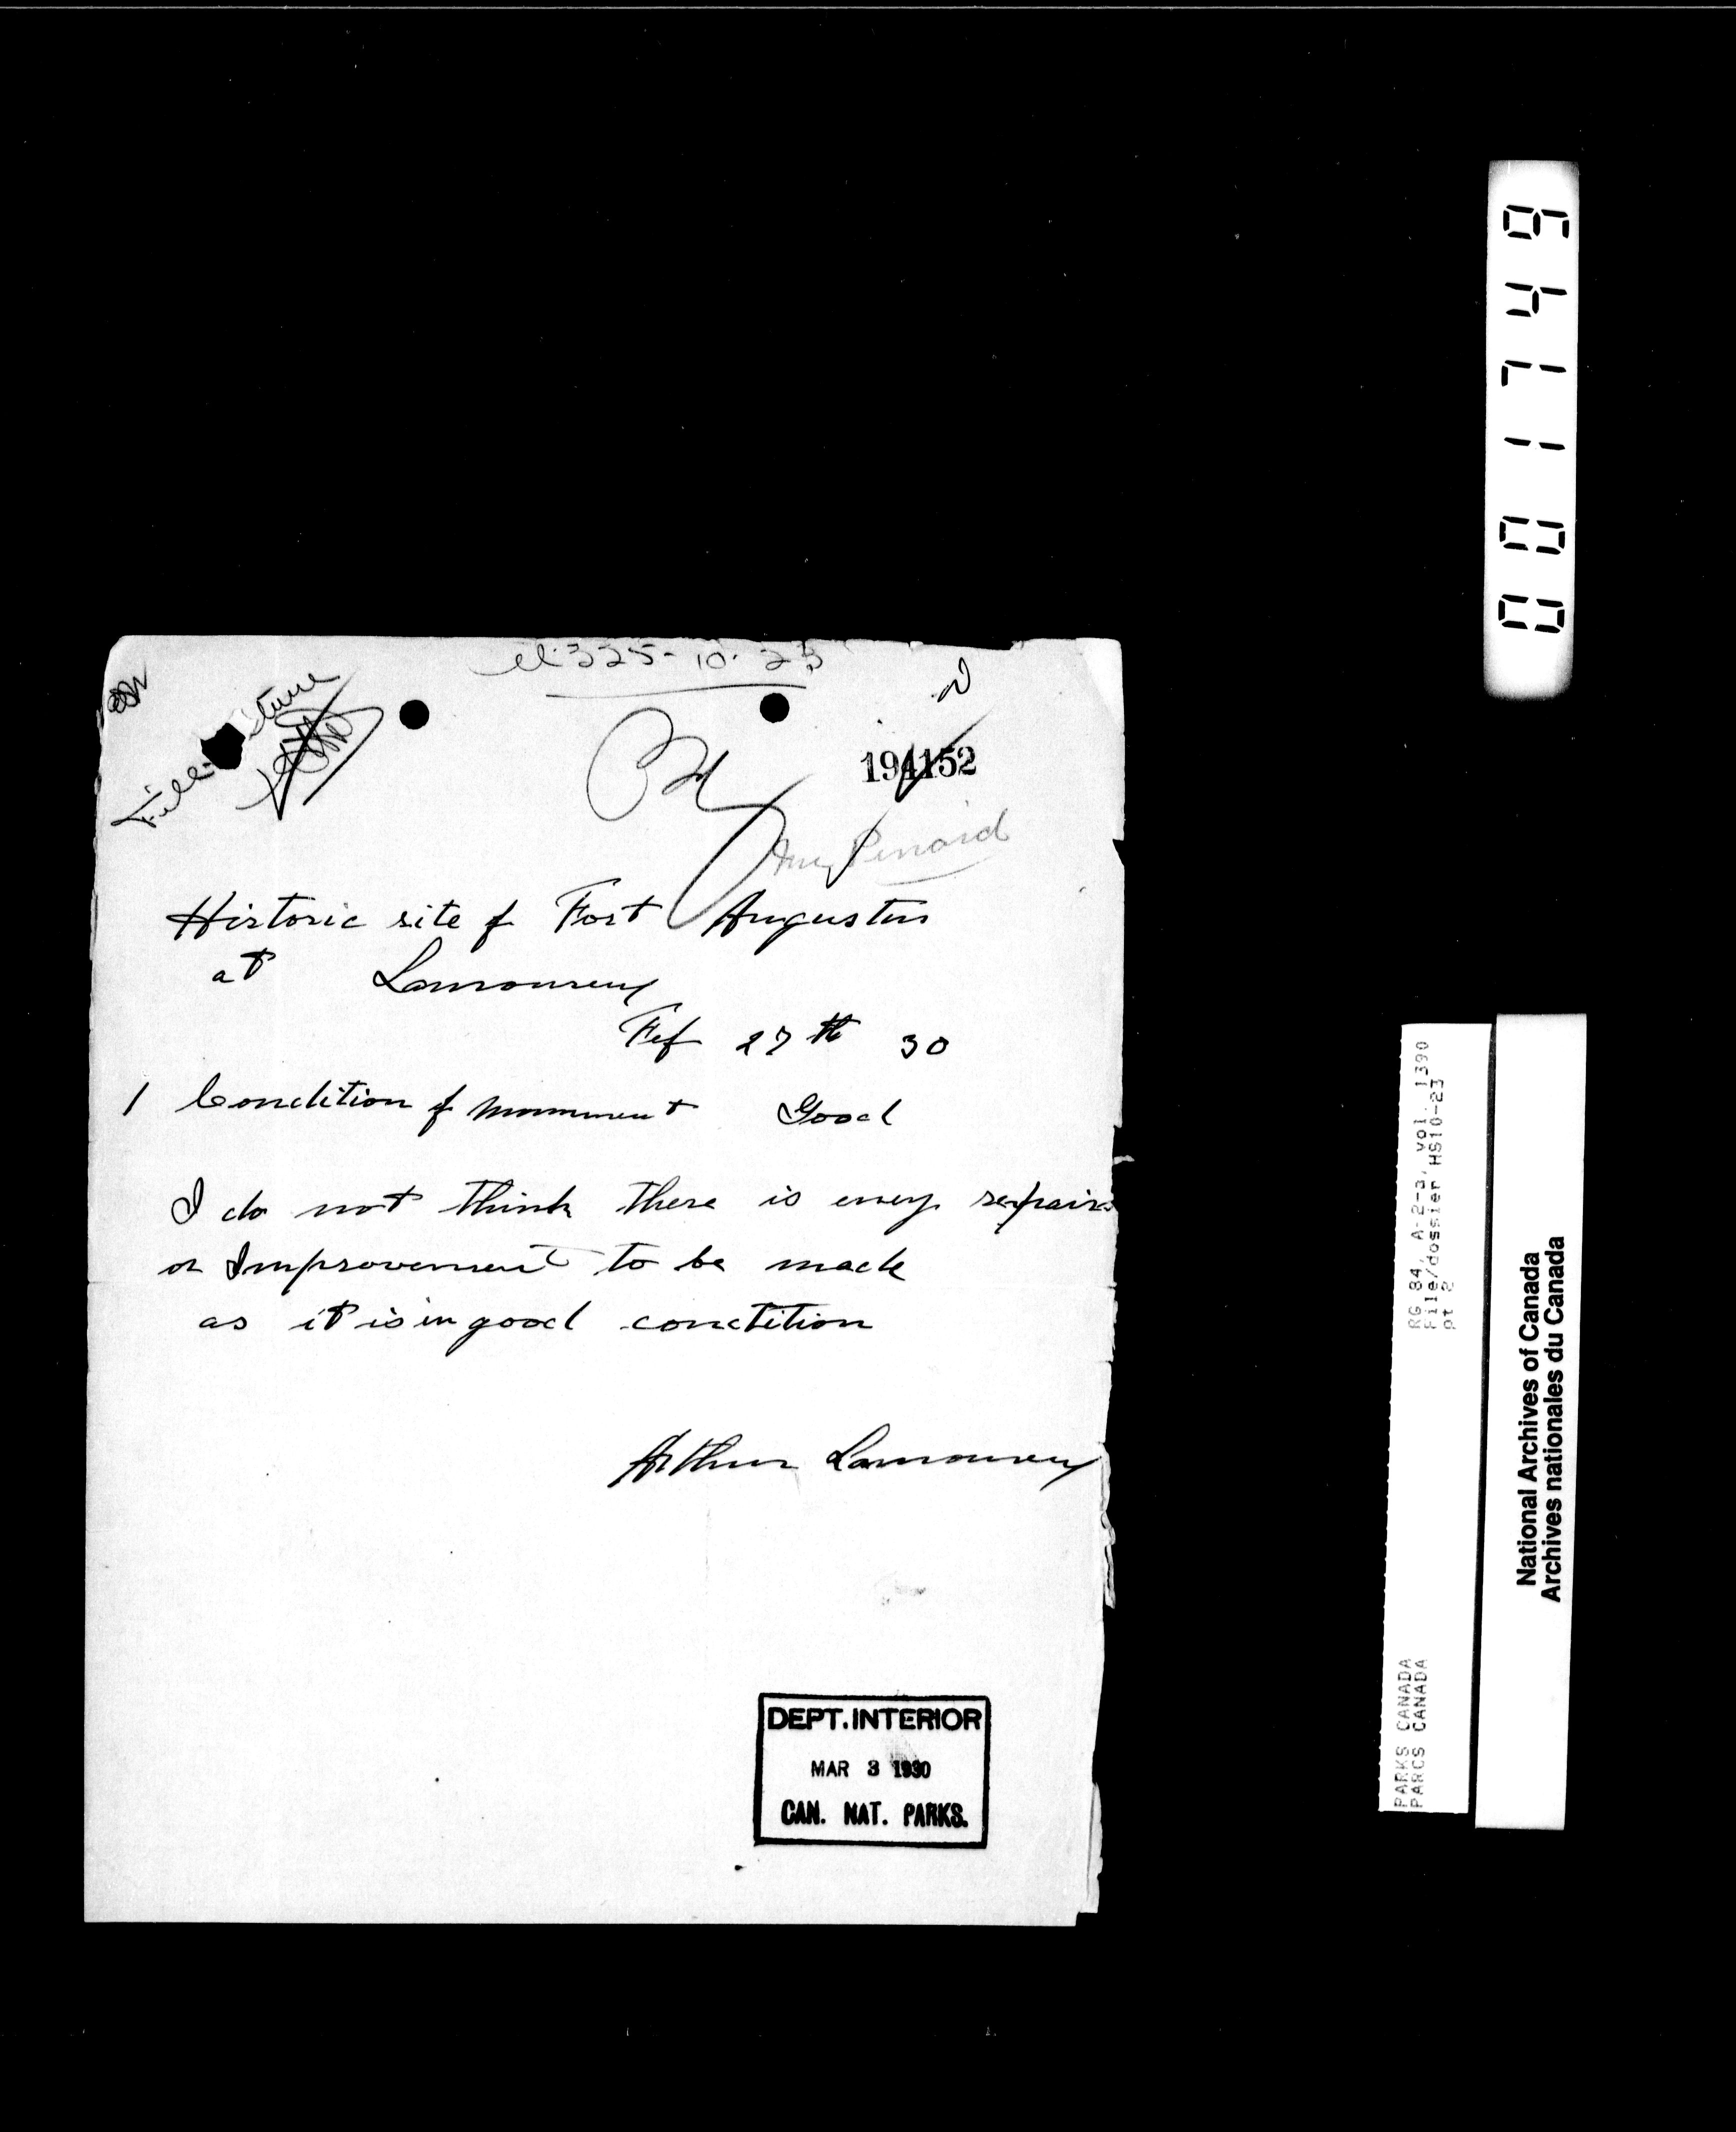 U.325-10.23
194152
Historic site of Fort Augustus
at Lamoureux
Fef 27th 30
1 Condition of Monument Good
I do not think there is eney repairs
or Improvement to be made
as it is in good condition
Arthur Lamoureux
DEPT. INTERIOR
MAR 3 1930
CAN. NAT. PARKS.
001749
RG 84, A-2-a, vol. 1390
File/dossier HS10-23
pt 2
PARKS CANADA
PARCS CANADA
National Archives of Canada
Archives nationales du Canada